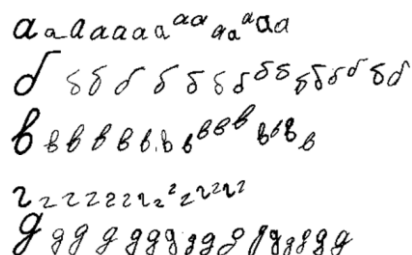 а а а а а а а а а а а а а а
б б б б б б б б б б б б б б б б
в в в в в в в в в в в в в в в
г г г г г г г г г г г г г г
д д д д д д д д д д д д д д д д